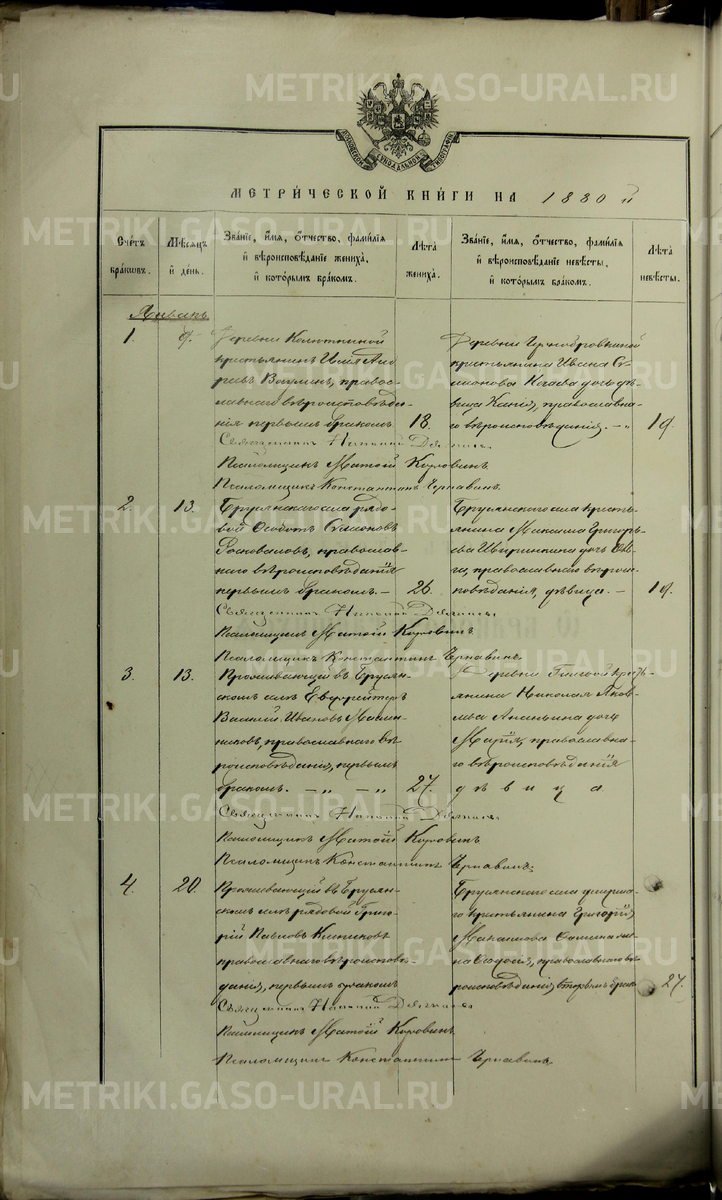 METRIKI.GASO-URAL.RU
МЕТРИЧЕСКОЙ КНИГИ НА 1880 й
Счетъ браковъ.
Мѣсяцъ и день.
Званіе, имя, отчество, фамилія
и вѣроисповѣданіе жениха,
и которымъ бракомъ.
Лѣта жениха.
Званіе, имя, отчество, фамилія
и вѣроисповѣданіе невѣсты,
и которымъ бракомъ.
Лѣта невѣсты.
Январь
1. 9.
Деревни Колюткиной
крестьянинъ Илія Анд
реевъ Вагулинъ, право
славнаго вѣроисповѣда
нія первымъ бракомъ
18.
Деревни Чернобровкиной
крестьянина Ивана Се
менова дочь дѣ
вица православна
го вѣроисповѣданія. — „
19.
Священникъ
Псаломщикъ Матѳій Коровинъ
Псаломщикъ Константинъ Чернавинъ
2. 13.
Брусянскаго села рядо
вой Ѳеодотъ Семеновъ
православ
наго вѣроисповѣданія
первымъ бракомъ. —
26.
Брусянскаго села кресть
янина Максима Григорь
ева дочь
православнаго вѣроис
повѣданія, дѣвица. —
19.
Священникъ
Псаломщикъ Матѳій Коровинъ
Псаломщикъ Константинъ Чернавинъ
3. 13.
Проживающій въ Брусян
скомъ селѣ Ефрейторъ
Василій Ивановъ
православнаго вѣ
роисповѣданія, первымъ
бракомъ. — „ — „
27.
Деревни кресть
янина Николая Яков
лева Ананьина дочь
Марія, православна
го вѣроисповѣданія
дѣвица
Священникъ
Псаломщикъ Матѳій Коровинъ
Псаломщикъ Константинъ Чернавинъ
4. 20.
Проживающій въ Брусян
скомъ селѣ рядовой Григо
рій Павловъ
православнаго вѣроисповѣ
данія, первымъ бракомъ
Брусянскаго села умерша
го крестьянина Григорія
Максимова жe
на Ѳеодосія, православнаго вѣ
роисповѣданія, вторымъ брак
27.
Священникъ
Псаломщикъ Матѳій Коровинъ
Псаломщикъ Константинъ Чернавинъ